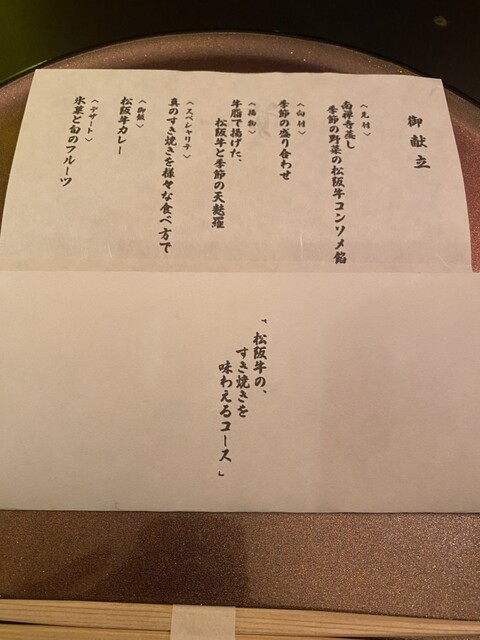 御献立
〈先付〉
南禅寺蒸し
季節の野菜の松阪牛コンソメ餡
〈向付〉
季節の盛り合わせ
〈揚物〉
牛脂で揚げた、
松阪牛と季節の天麩羅
〈スペシャリテ〉
真のすき焼きを様々な食べ方で
〈御飯〉
松阪牛カレー
〈デザート〉
氷菓と旬のフルーツ
「松阪牛の、
すき焼きを
味わえるコース」